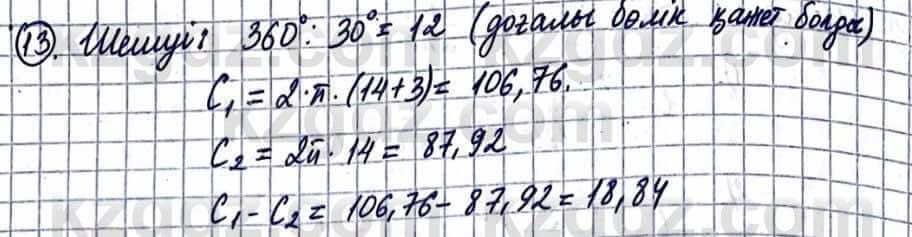 13. Шешуі: 360°:30°=12 (доғалы бөлік қажет болды)
C₁ = 2·π·(14+3)= 106,76.
C₂ = 2π·14 = 87,92
C₁-C₂ = 106,76-87,92=18,84